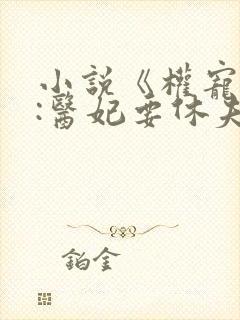 小說《權寵
:醫妃要休夫
鉑金